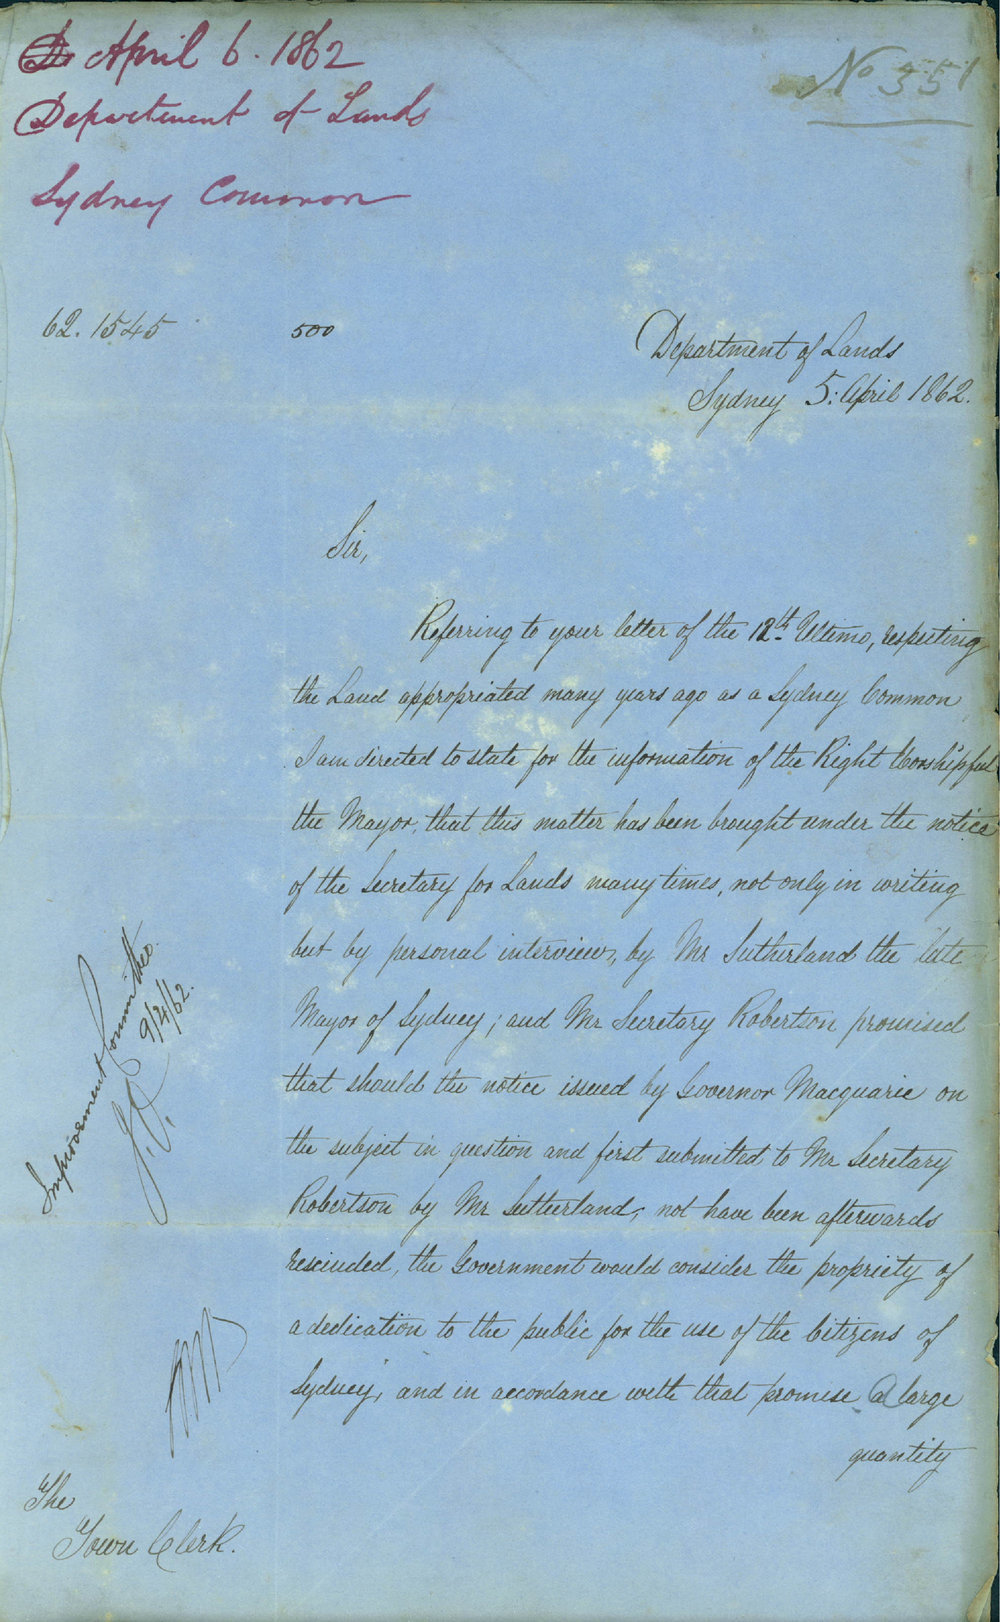 April 6. 1862
Department of Lands
Sydney Common
No 351
62.1545
500
Department of Lands
Sydney 5: April 1862.
Sir,
Referring to your letter of the 12th Ultimo, respecting
the Land appropriated many years ago as a Sydney Common
I am directed to state for the information of the Right Worshipful
the Mayor, that this matter has been brought under the notice
of the Secretary for Lands many times, not only in writing
but by personal interview, by Mr Sutherland the late
Mayor of Sydney; and Mr Secretary Robertson promised
that should the notice issued by Governor Macquarie on
the subject in question and first submitted to Mr Secretary
Robertson by Mr Sutherland, not have been afterwards
rescinded, the Government would consider the propriety of
a dedication to the public for the use of the Citizens of
Sydney, and in accordance with that promise a large
quantity
Improvement Committee
9/4/62.
The
Town Clerk.